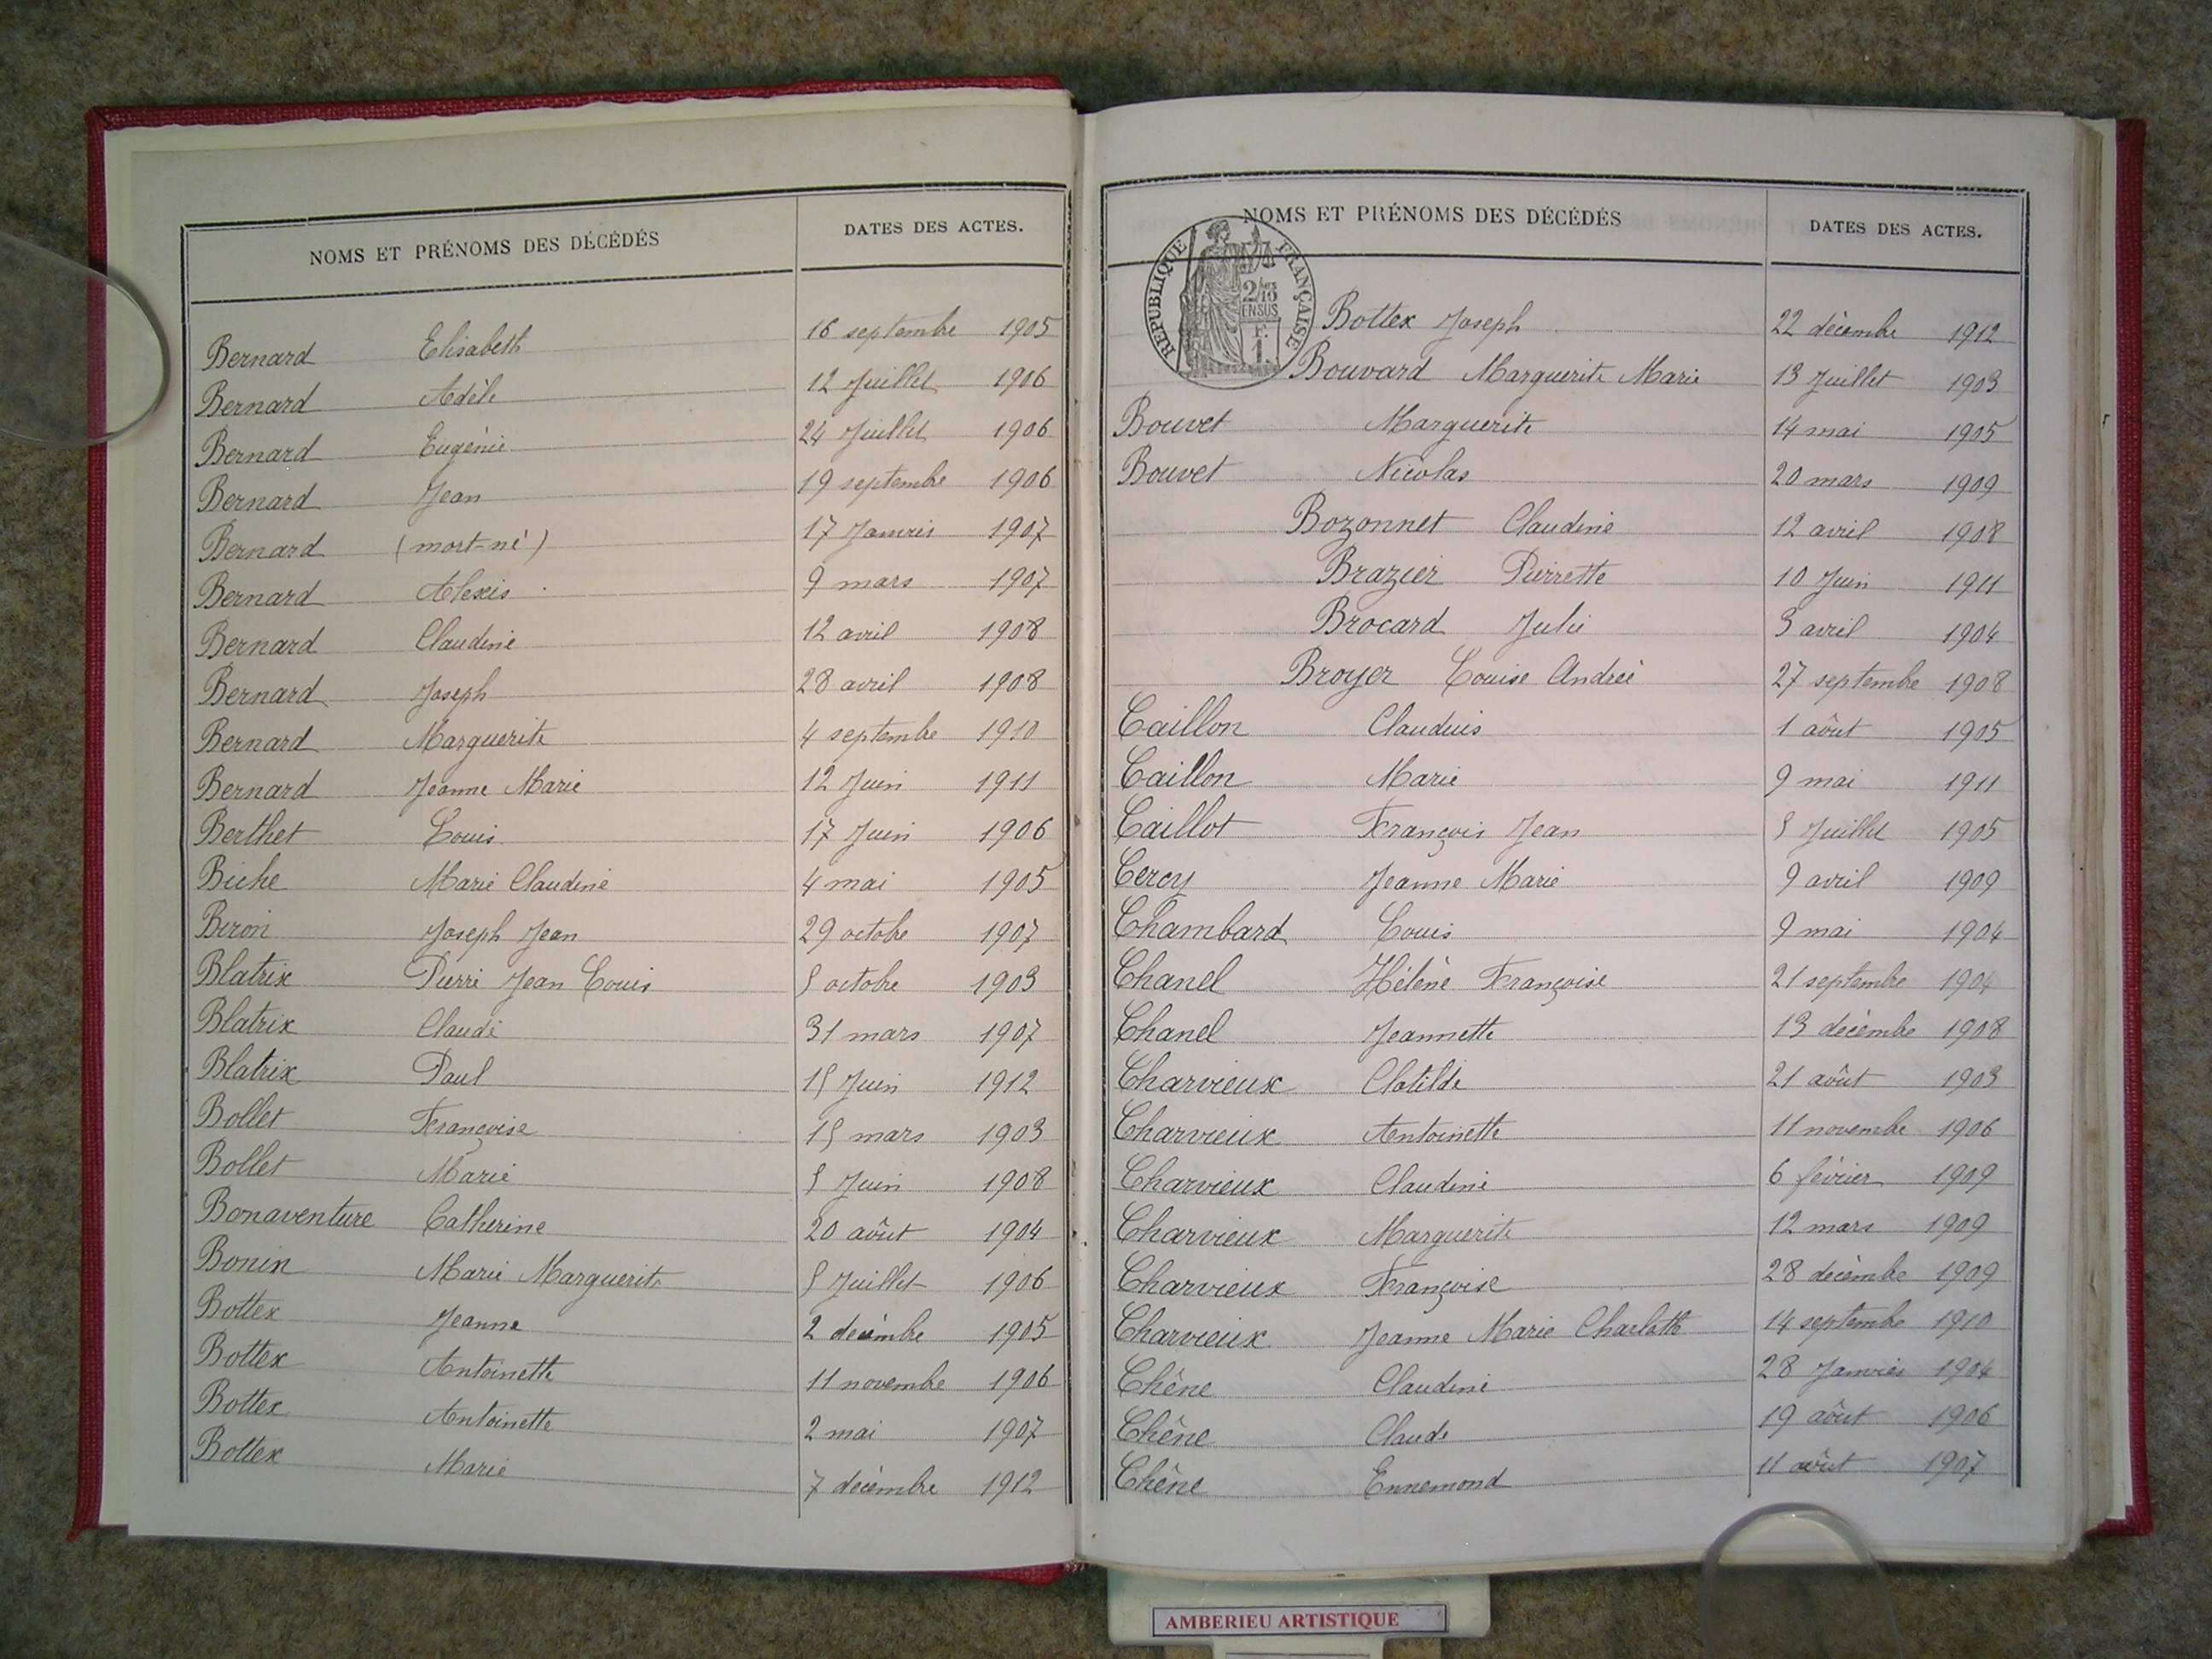 NOMS ET PRÉNOMS DES DÉCÉDÉS DATES DES ACTES.
Bernard Elisabeth 16 septembre 1905
Bernard Adèle 12 Juillet 1906
Bernard Eugénie 24 Juillet 1906
Bernard Jean 19 septembre 1906
Bernard (mort-né) 17 Janvier 1907
Bernard Alexis 9 mars 1907
Bernard Claudine 12 avril 1908
Bernard Joseph 28 avril 1908
Bernard Marguerite 4 septembre 1910
Bernard Jeanne Marie 12 Juin 1911
Berthet Louis 17 Juin 1906
Biche Marie Claudine 4 mai 1905
Biron Joseph Jean 29 octobre 1907
Blatrix Pierre Jean Louis 5 octobre 1903
Blatrix Claude 31 mars 1907
Blatrix Paul 15 Juin 1912
Bollet Françoise 15 mars 1903
Bollet Marie 5 Juin 1908
Bonaventure Catherine 20 aôut 1904
Bonin Marie Marguerite 5 Juillet 1906
Bottex Jeanne 2 décembre 1905
Bottex Antoinette 11 novembre 1906
Bottex Antoinette 2 mai 1907
Bottex Marie 7 décembre 1912
NOMS ET PRÉNOMS DES DÉCÉDÉS DATES DES ACTES.
REPUBLIQUE FRANÇAISE
2/10
EN SUS
F.
1.
Bottex Joseph 22 décembre 1912
Bouvard Marguerite Marie 13 Juillet 1903
Bouvet Marguerite 14 mai 1905
Bouvet Nicolas 20 mars 1909
Bozonnet Claudine 12 avril 1908
Brazier Pierrette 10 Juin 1911
Brocard Julie 3 avril 1904
Broyer Louise Andrée 27 septembre 1908
Caillon Claudius 1 aôut 1905
Caillon Marie 9 mai 1911
Caillot François Jean 5 Juillet 1905
Cercy Jeanne Marie 9 avril 1909
Chambard Louis 9 mai 1904
Chanel Hélène Françoise 21 septembre 1904
Chanel Jeannette 13 décembre 1908
Charvieux Clotilde 21 aôut 1903
Charvieux Antoinette 11 novembre 1906
Charvieux Claudine 6 février 1909
Charvieux Marguerite 12 mars 1909
Charvieux Françoise 28 décembre 1909
Charvieux Jeanne Marie Charlotte 14 septembre 1910
Chêne Claudine 28 Janvier 1904
Chêne Claude 19 aôut 1906
Chêne Ennemond 11 aôut 1907
AMBERIEU ARTISTIQUE